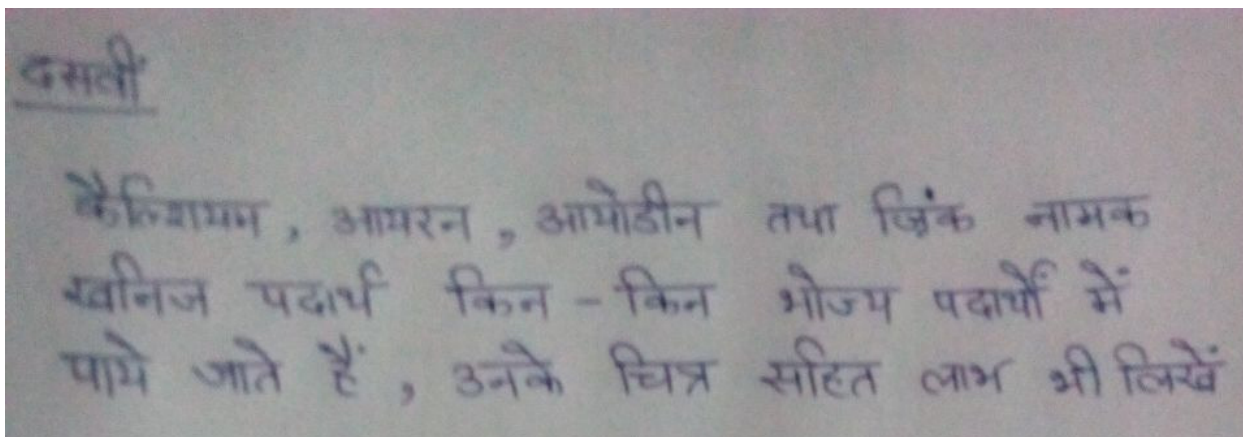 दसवीं
कैल्शियम, आयरन, आयोडीन तथा जिंक नामक
खनिज पदार्थ किन-किन भोज्य पदार्थों में
पाये जाते हैं, उनके चित्र सहित लाभ भी लिखें